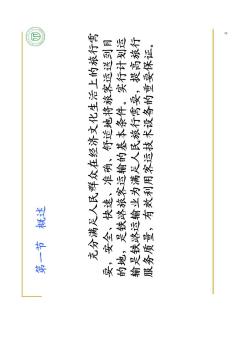 第一节 概述
充分满足人民群众在经济文化生活上的旅行需
要，安全、快速、准确、舒适地将旅客运送到目
的地，是铁路旅客运输的基本条件。实行计划运
输是铁路运输业为满足人民旅行需要，提高旅行
服务质量，有效利用客运技术设备的重要保证。